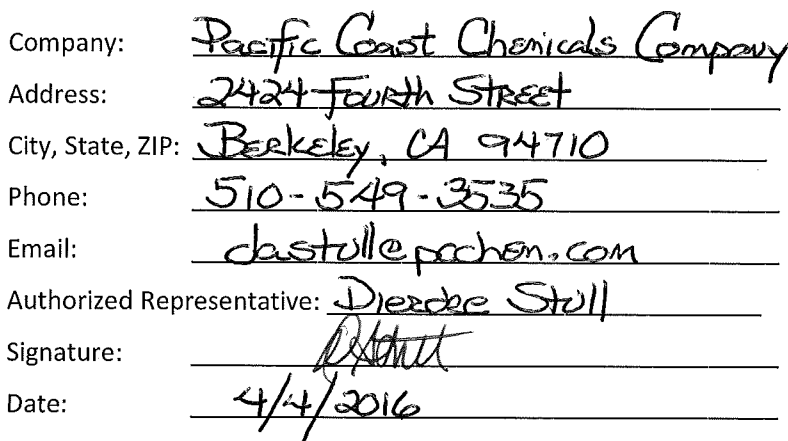 Company: Pacific Coast Chemicals Company
Address: 2424 Fourth Street
City, State, ZIP: Berkeley, CA 94710
Phone: 510-549-3535
Email: dastull@pcchem.com
Authorized Representative: Stull
Signature:
Date: 4/4/2016